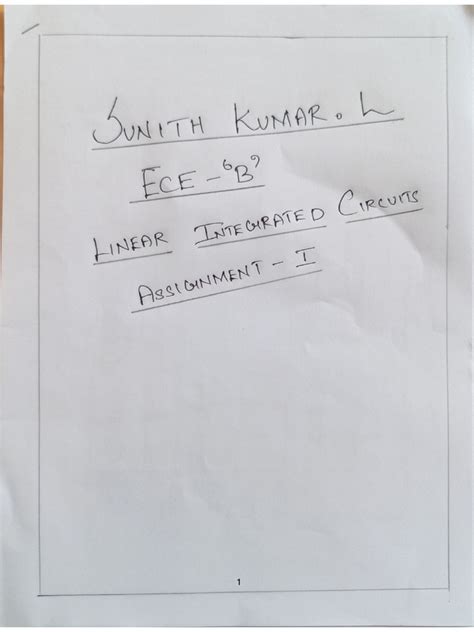 SUNITH KUMAR. L
ECE - 'B'
LINEAR INTEGRATED CIRCUITS
ASSIGNMENT - I
1